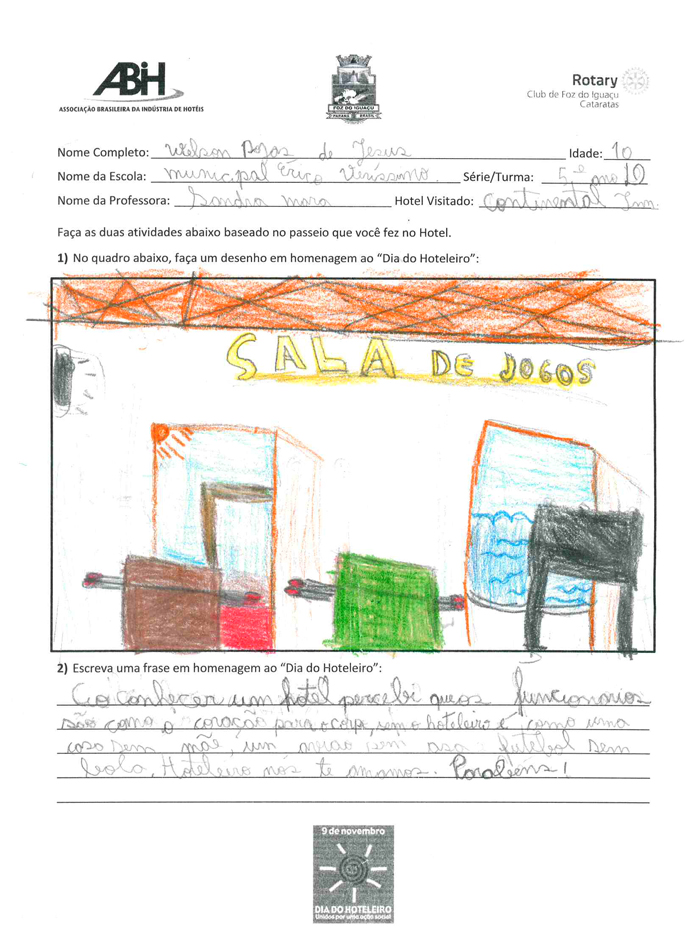 ABIH
ASSOCIAÇÃO BRASILEIRA DA INDÚSTRIA DE HOTÉIS
FOZ DO IGUAÇU
PARANÁ BRASIL
Rotary
Club de Foz do Iguaçu
Cataratas
Nome Completo: Welson de Jesus Idade: 10
Nome da Escola: Municipal Érico Veríssimo. Série/Turma: 5º ano
Nome da Professora: Sandra Mara Hotel Visitado: Continental Inn.
Faça as duas atividades abaixo baseado no passeio que você fez no Hotel.
1) No quadro abaixo, faça um desenho em homenagem ao “Dia do Hoteleiro”:
SALA DE JOGOS
2) Escreva uma frase em homenagem ao “Dia do Hoteleiro”:
Ao conhecer um hotel percebi que os funcionarios
são como o coração para o corpo, sem o hoteleiro é como uma
casa sem mãe, um avião sem asa futebol sem
bola, Hoteleiro nós te amamos. Parabéns!
9 de novembro
DIA DO HOTELEIRO
Unidos por uma ação social